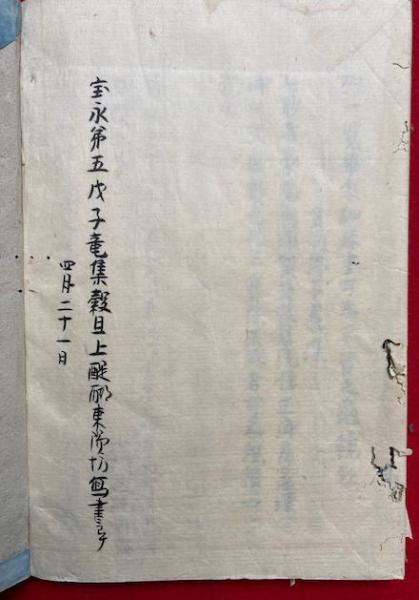 宝永第五戊子竜集穀旦上醍醐東 坊写書
四月二十一日